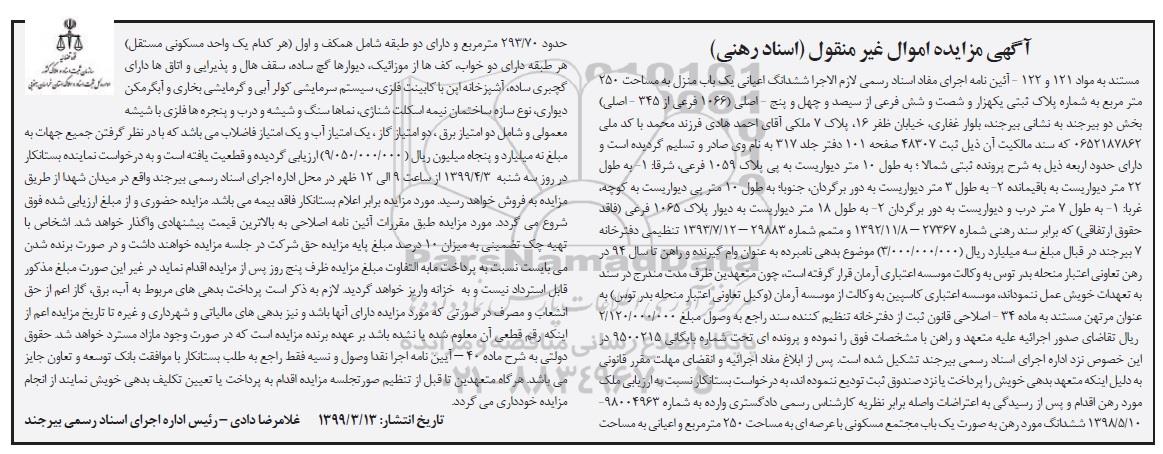 آگهی مزایده اموال غیر منقول (اسناد رهنی)
مستند به مواد ۱۲۱ و ۱۲۲ - آئین نامه اجرای مفاد اسناد رسمی لازم الاجرا ششدانگ اعیانی یک باب منزل به مساحت ۲۵۰
متر مربع به شماره پلاک ثبتی یکهزار و شصت و شش فرعی از سیصد و چهل و پنج - اصلی (۱۰۶۶ فرعی از ۳۴۵ - اصلی)
بخش دو بیرجند به نشانی بیرجند، بلوار غفاری، خیابان ظفر ۱۶، پلاک ۷ ملکی آقای احمد هادی فرزند محمد با کد ملی
۰۶۵۲۱۸۷۸۶۲ که سند مالکیت آن ذیل ثبت ۴۸۳۰۷ صفحه ۱۰۱ دفتر جلد ۳۱۷ به نام وی صادر و تسلیم گردیده است و
دارای حدود اربعه ذیل به شرح پرونده ثبتی شمالا ؛ به طول ۱۰ متر دیواریست به پی پلاک ۱۰۵۹ فرعی، شرقا: ۱- به طول
۲۲ متر دیواریست به باقیمانده ۲- به طول ۳ متر دیواریست به دور برگردان، جنوبا؛ به طول ۱۰ متر پی دیواریست به کوچه،
غربا: ۱- به طول ۷ متر درب و دیواریست به دور برگردان ۲- به طول ۱۸ متر دیواریست به دیوار پلاک ۱۰۶۵ فرعی (فاقد
حقوق ارتفاقی) که برابر سند رهنی شماره ۲۷۳۶۷ – ۱۳۹۲/۱۱/۸ و متمم شماره ۲۹۸۸۳ – ۱۳۹۳/۷/۱۲ تنظیمی دفترخانه
۷ بیرجند در قبال مبلغ سه میلیارد ریال (۳/۰۰۰/۰۰۰/۰۰۰) موضوع بدهی نامبرده به عنوان وام گیرنده و راهن تا سال ۹۴ در
رهن تعاونی اعتبار منحله بدر توس به وکالت موسسه اعتباری آرمان قرار گرفته است، چون متعهدین ظرف مدت مندرج در سند
به تعهدات خویش عمل ننموداند، موسسه اعتباری کاسپین به وکالت از موسسه آرمان (وکیل تعاونی اعتبار منحله بدر توس) به
عنوان مرتهن مستند به ماده ۳۴ - اصلاحی قانون ثبت از دفترخانه تنظیم کننده سند راجع به وصول مبلغ ۲/۱۲۰/۰۰۰/۰۰۰
ریال تقاضای صدور اجرائیه علیه متعهد و راهن با مشخصات فوق را نموده و پرونده ای تحت شماره بایگانی ۹۵۰۰۲۱۵ در
این خصوص نزد اداره اجرای اسناد رسمی بیرجند تشکیل شده است. پس از ابلاغ مفاد اجرائیه و انقضای مهلت مقرر قانونی
به دلیل اینکه متعهد بدهی خویش را پرداخت یا نزد صندوق ثبت تودیع ننموده اند، به درخواست بستانکار نسبت به ارزیابی ملک
مورد رهن اقدام و پس از رسیدگی به اعتراضات واصله برابر نظریه کارشناس رسمی دادگستری وارده به شماره ۹۸۰۰۴۹۶۳-
۱۳۹۸/۵/۱۰ ششدانگ مورد رهن به صورت یک باب مجتمع مسکونی با عرصه ای به مساحت ۲۵۰ متر مربع و اعیانی به مساحت
حدود ۲۹۳/۷۰ مترمربع و دارای دو طبقه شامل همکف و اول (هر کدام یک واحد مسکونی مستقل)
هر طبقه دارای دو خواب، کف ها از موزائیک، دیوارها گچ ساده، سقف هال و پذیرایی و اتاق ها دارای
گچبری ساده، آشپزخانه اپن با کابینت فلزی، سیستم سرمایشی کولر آبی و گرمایشی بخاری و آبگرمکن
دیواری، نوع سازه ساختمان نیمه اسکلت شناژی، نماها سنگ و شیشه و درب و پنجره ها فلزی با شیشه
معمولی و شامل دو امتیاز برق ، دو امتیاز گاز ، یک امتیاز آب و یک امتیاز فاضلاب می باشد که با در نظر گرفتن جمیع جهات به
مبلغ نه میلیارد و پنجاه میلیون ریال (۹/۰۵۰/۰۰۰/۰۰۰) ارزیابی گردیده و قطعیت یافته است و به درخواست نماینده بستانکار
در روز سه شنبه ۱۳۹۹/۴/۳ از ساعت ۹ الی ۱۲ ظهر در محل اداره اجرای اسناد رسمی بیرجند واقع در میدان شهدا از طریق
مزایده به فروش خواهد رسید. مورد مزایده برابر اعلام بستانکار فاقد بیمه می باشد. مزایده حضوری و از مبلغ ارزیابی شده فوق
شروع می گردد. مورد مزایده طبق مقررات آئین نامه اصلاحی به بالاترین قیمت پیشنهادی واگذار خواهد شد. اشخاص با
تهیه چک تضمینی به میزان ۱۰ درصد مبلغ پایه مزایده حق شرکت در جلسه مزایده خواهند داشت و در صورت برنده شدن
می بایست نسبت به پرداخت مابه التفاوت مبلغ مزایده ظرف پنج روز پس از مزایده اقدام نماید در غیر این صورت مبلغ مذکور
قابل استرداد نیست و به خزانه واریز خواهد گردید. لازم به ذکر است پرداخت بدهی های مربوط به آب، برق، گاز اعم از حق
انشعاب و مصرف در صورتی که مورد مزایده دارای آنها باشد و نیز بدهی های مالیاتی و شهرداری و غیره تا تاریخ مزایده اعم از
اینکه رقم قطعی آن معلوم شده یا نشده باشد بر عهده برنده مزایده است که در صورت وجود مازاد مسترد خواهد شد. حقوق
دولتی به شرح ماده ۴۰ – آیین نامه اجرا نقدا وصول و نسیه فقط راجع به طلب بستانکار با موافقت بانک توسعه و تعاون جایز
می باشد. هرگاه متعهدین تا قبل از تنظیم صورتجلسه مزایده اقدام به پرداخت یا تعیین تکلیف بدهی خویش نمایند از انجام
مزایده خودداری می گردد.
تاریخ انتشار: ۱۳۹۹/۳/۱۳ غلامرضا دادی – رئیس اداره اجرای اسناد رسمی بیرجند